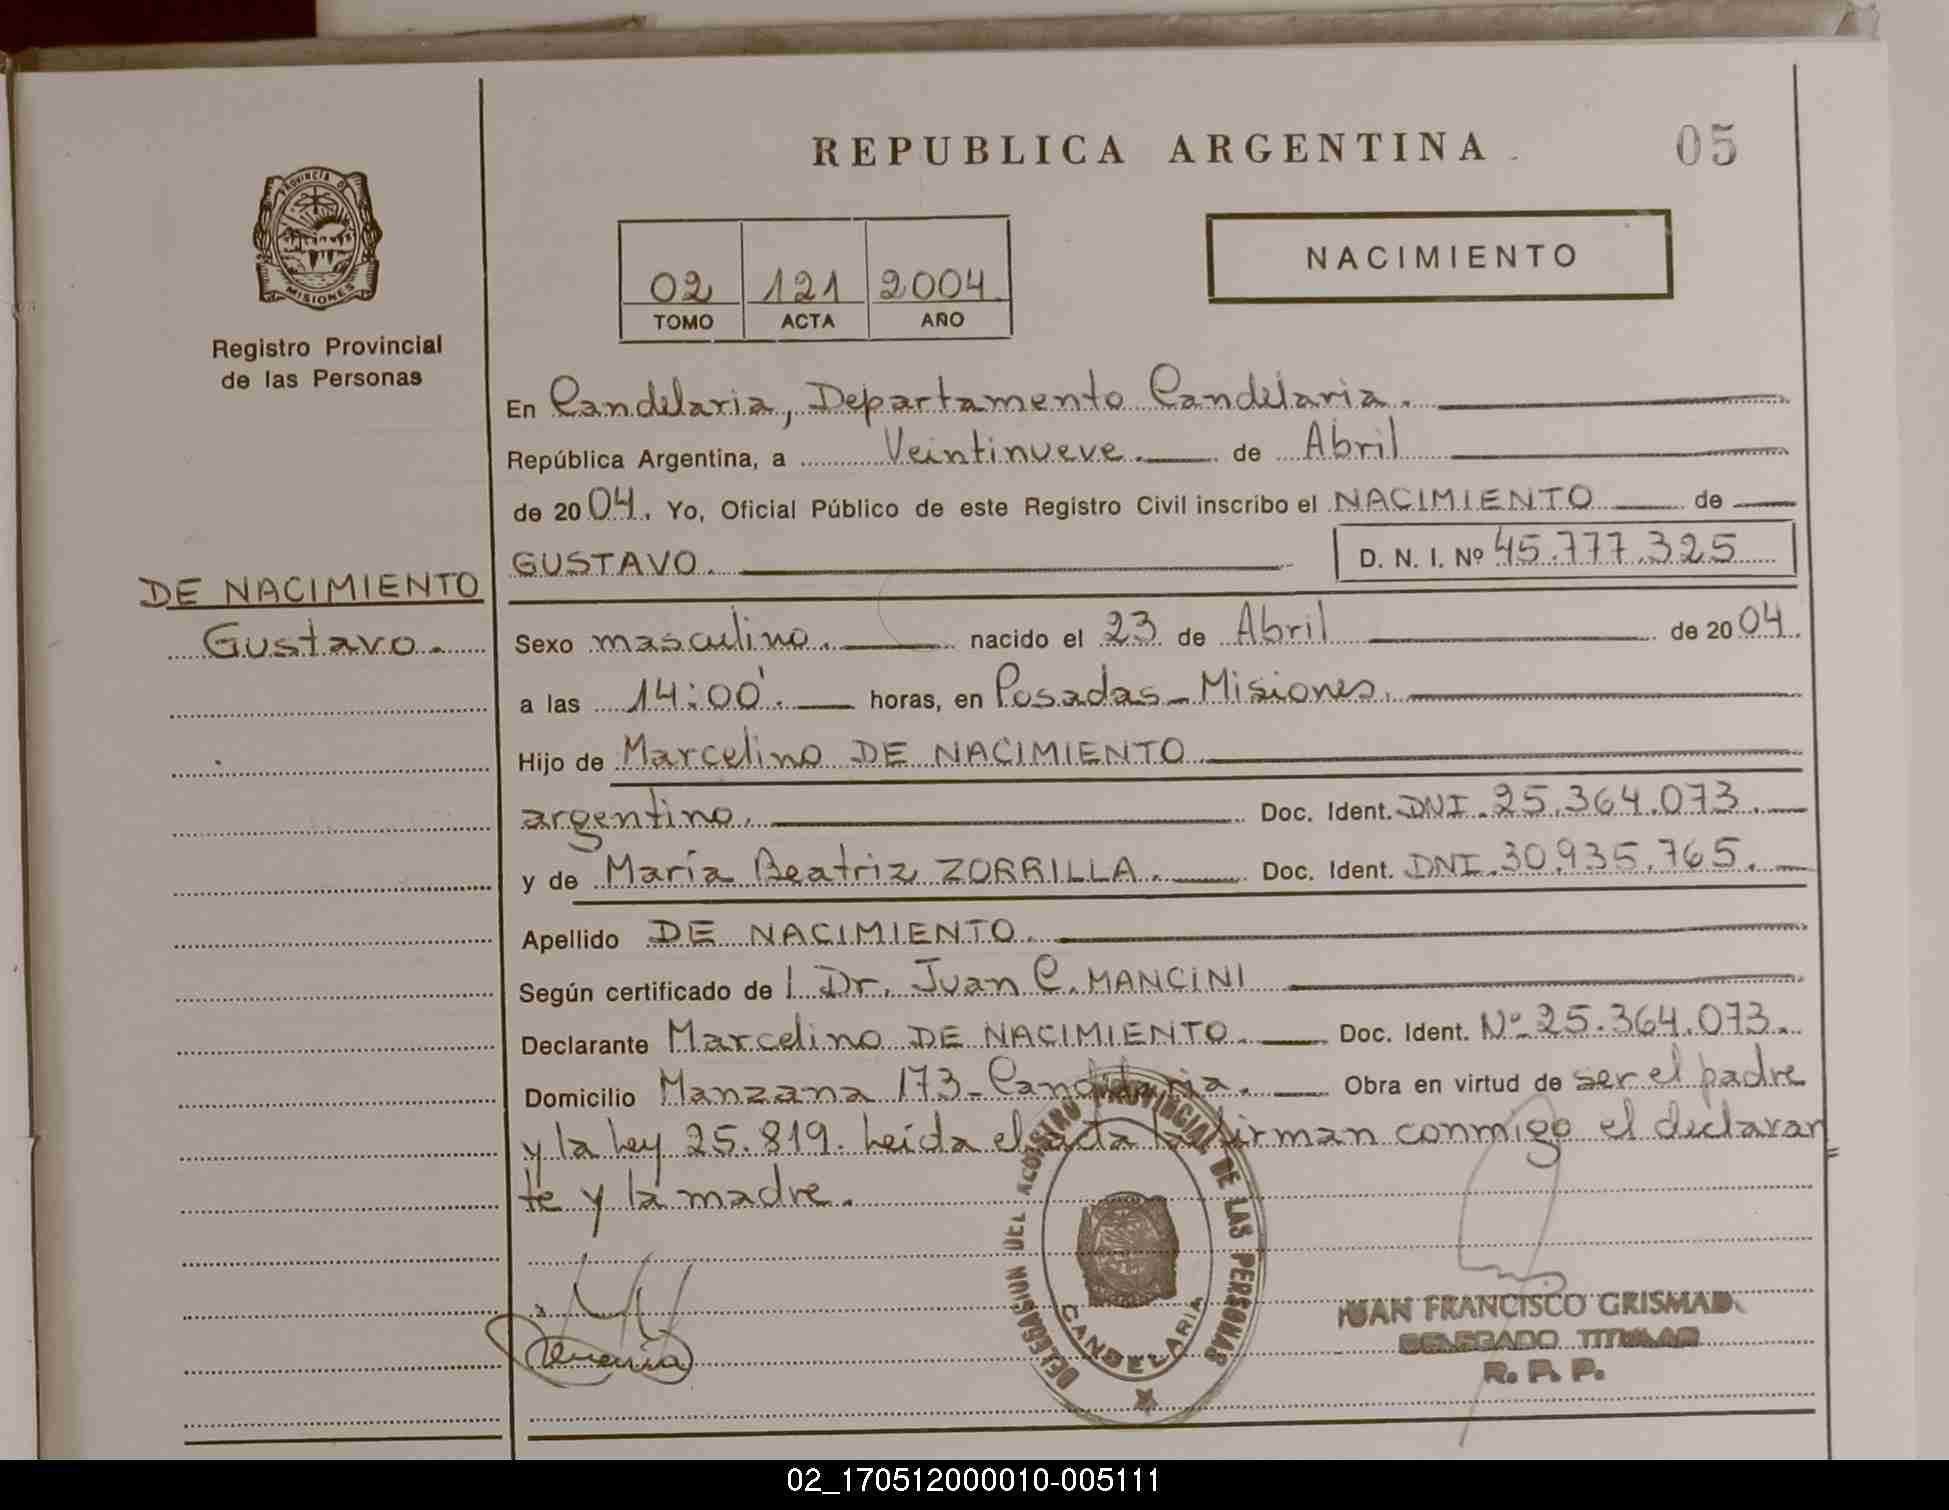 REPUBLICA ARGENTINA
05
PROVINCIA DE
MISIONES
Registro Provincial
de las Personas
02 121 2004
TOMO ACTA AÑO
NACIMIENTO
En Candelaria, Departamento Candelaria.
República Argentina, a Veintinueve. de Abril
de 2004. Yo, Oficial Público de este Registro Civil inscribo el NACIMIENTO de
GUSTAVO.
D. N. I. Nº 45.777.325
DE NACIMIENTO
Gustavo.
Sexo masculino. nacido el 23 de Abril de 2004.
a las 14:00'. horas, en Posadas - Misiones.
Hijo de Marcelino DE NACIMIENTO
argentino. Doc. Ident. DNI. 25.364.073.
y de María Beatriz ZORRILLA. Doc. Ident. DNI. 30.935.765.
Apellido DE NACIMIENTO.
Según certificado de l Dr. Juan C. MANCINI
Declarante Marcelino DE NACIMIENTO. Doc. Ident. Nº 25.364.073.
Domicilio Manzana 173 - Candelaria. Obra en virtud de ser el padre
y la ley 25.819. Leída el acta la firman conmigo el declaran=
te y la madre.
DELEGACION DEL REGISTRO PROVINCIAL DE LAS PERSONAS
CANDELARIA
JUAN FRANCISCO GRISMAD.
DELEGADO TITULAR
R. P. P.
02_170512000010-005111